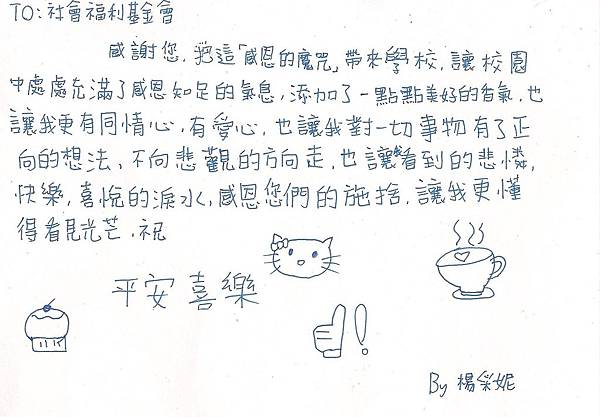 TO:社會福利基金會
感謝您,把這「感恩的魔咒」帶來學校,讓校園
中處處充滿了感恩知足的氣息,添加了一點點美好的香氣,也
讓我更有同情心,有愛心,也讓我對一切事物有了正
向的想法、不向悲觀的方向走,也讓看到的悲憐,
快樂,喜悅的淚水,感恩您們的施捨,讓我更懂
得看見光芒,祝
平安喜樂
By 楊采妮